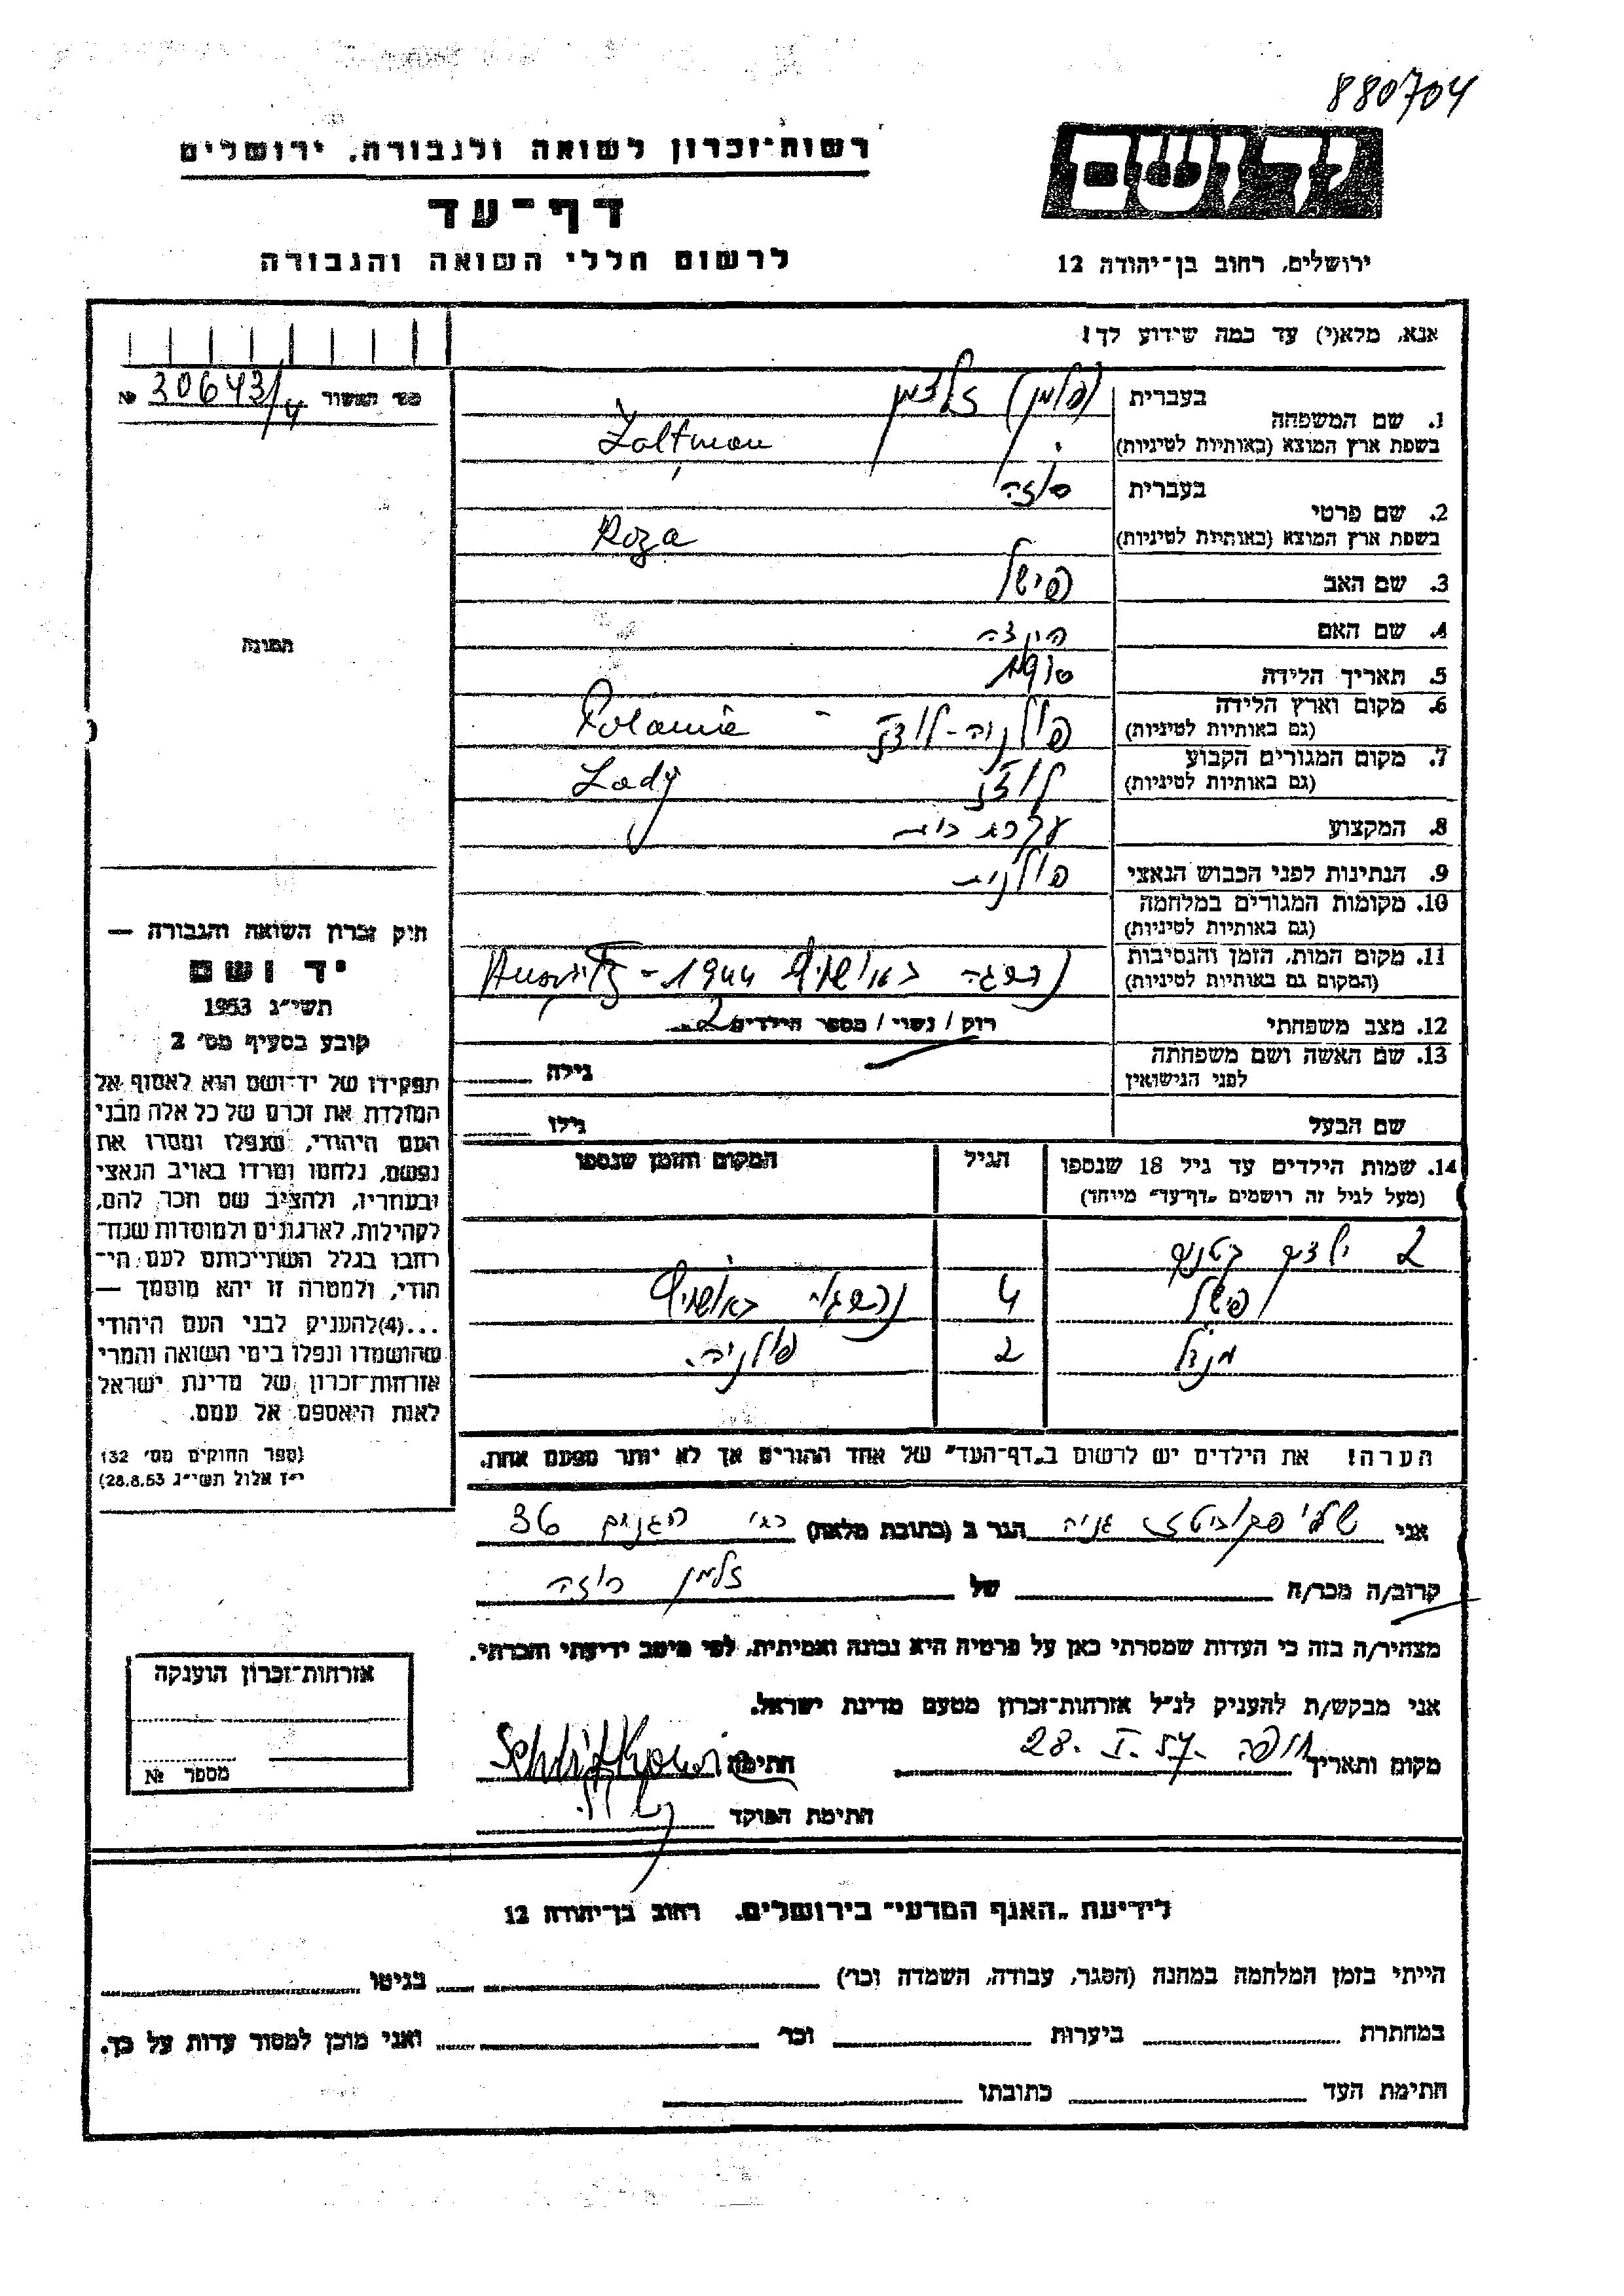 880704
רשות־זכרון לשואה ולגבורה, ירושלים
ידושם
דף־עד
לרשום חללי השואה והגבורה
ירושלים, רחוב בן־יהודה 12
אנא, מלא(י) עד כמה שידוע לך!
מס׳ האשור № 30643/4
1. שם המשפחה
בעברית
זלצמן
בשפת ארץ המוצא (באותיות לטיניות)
Żaltman
2. שם פרטי
בעברית
רוזה
בשפת ארץ המוצא (באותיות לטיניות)
Roza
3. שם האב פישל
4. שם האם הינצה
5. תאריך הלידה
6. מקום וארץ הלידה
(גם באותיות לטיניות)
פולניה - לודז
7. מקום המגורים הקבוע
(גם באותיות לטיניות)
לודז Lodz
8. המקצוע עקרת בית
9. הנתינות לפני הכבוש הנאצי פולנית
10. מקומות המגורים במלחמה
(גם באותיות לטיניות)
11. מקום המות, הזמן והנסיבות
(המקום גם באותיות לטיניות)
1944 -
12. מצב משפחתי
רוק / נשוי / מספר הילדים 2
13. שם האשה ושם משפחתה
לפני הנישואין
גילה
שם הבעל גילו
14. שמות הילדים עד גיל 18 שנספו
(מעל לגיל זה רושמים „דף־עד״ מיוחד)
הגיל
המקום והזמן שנספו
2 ילדים קטנים
פישל 4
מנדל 2 פולניה.
הערה! את הילדים יש לרשום ב„דף־העד״ של אחד ההורים אך לא יותר מפעם אחת.
התמונה
חוק זכרון השואה והגבורה —
יד ושם
תשי״ג 1953
קובע בסעיף מס׳ 2
תפקידו של יד־ושם הוא לאסוף אל
המולדת את זכרם של כל אלה מבני
העם היהודי, שנפלו ומסרו את
נפשם, נלחמו ומרדו באויב הנאצי
ובעוזריו, ולהציב שם וזכר להם,
לקהילות, לארגונים ולמוסדות שנח־
רבו בגלל השתייכותם לעם הי־
הודי, ולמטרה זו יהא מוסמך —
...(4)להעניק לבני העם היהודי
שהושמדו ונפלו בימי השואה והמרי
אזרחות־זכרון של מדינת ישראל
לאות היאספם אל עמם.
(ספר החוקים מס׳ 132
י״ז אלול תשי״ג 28.8.53)
אני הגר ב (כתובת מלאה) 36
קרוב/ה מכר/ה של זלמן רוזה
מצהיר/ה בזה כי העדות שמסרתי כאן על פרטיה היא נכונה ואמיתית, לפי מיטב ידיעתי והכרתי.
אני מבקש/ת להעניק לנ״ל אזרחות־זכרון מטעם מדינת ישראל.
מקום ותאריך חיפה 28. I. 57. חתימה
חתימת הפוקד
אזרחות־זכרון הוענקה
מספר №
לידיעת „האגף המדעי״ בירושלים. רחוב בן־יהודה 12
הייתי בזמן המלחמה במחנה (הסגר, עבודה, השמדה וכו׳) בגיטו
במחתרת ביערות וכו׳ ואני מוכן למסור עדות על כך.
חתימת העד כתובתו